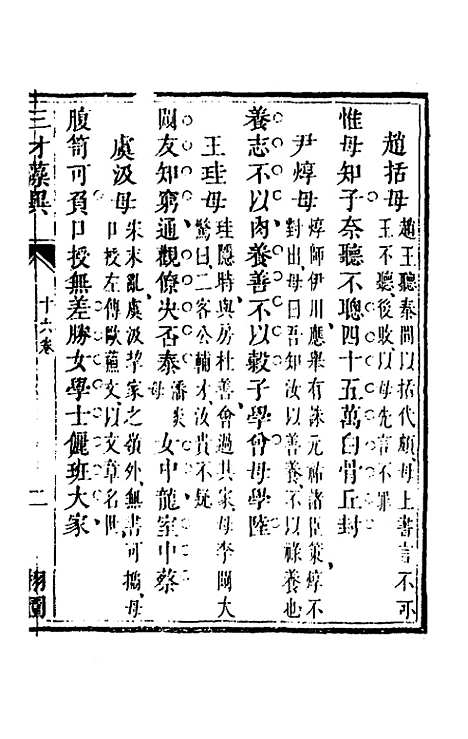 趙括母
趙王聽秦間以括代頗母上書言不可
王不聽後敗以母先言不罪
惟母知子奈聽不聰四十五萬白骨丘封
尹焞母
焞師伊川應舉有誅元祐諸臣策焞不
對出母曰吾知汝以善養不以祿養也
養志不以肉養善不以穀子學曾母學陸
王珪母
珪隱時與房杜善會過其家母李闚大
驚曰二客公輔才汝貴不疑
闚友知窮通觀僚決否泰潘炎母女中龍室中蔡
虞汲母
宋末亂虞汲挈家之嶺外無書可攜母
口授左傳歐蘇文以文章名世
腹笥可負口授無差勝女學士儷班大家
三才藻異
十六卷
二